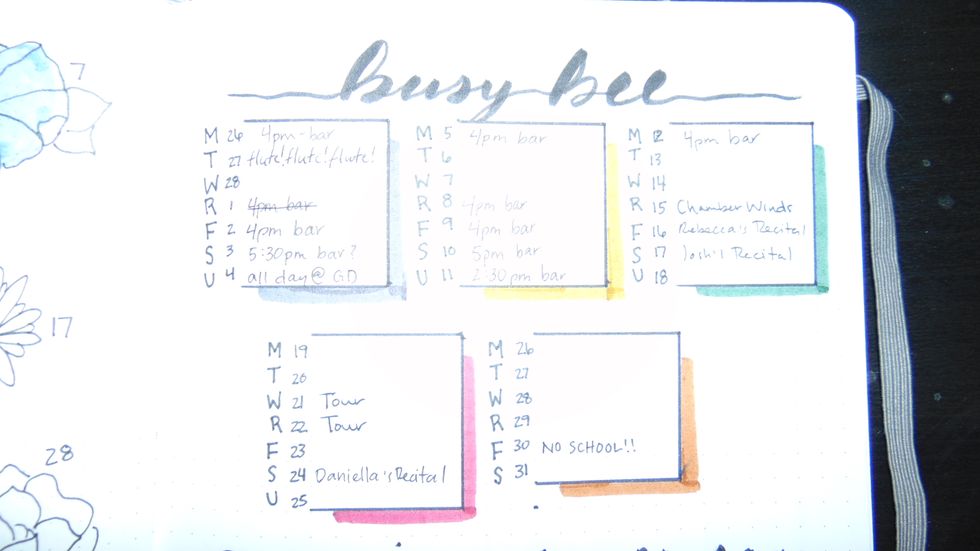 7
busy bee
M 26 4pm-bar
T 27 flute! flute! flute!
W 28
R 1 4pm bar
F 2 4pm bar
S 3 5:30pm bar?
U 4 all day @ GD
M 5 4pm bar
T 6
W 7
R 8 4pm bar
F 9 4pm bar
S 10 5pm bar
U 11 2:30pm bar
M 12 4pm bar
T 13
W 14
R 15 Chamber Winds
F 16 Rebecca's Recital
S 17 Josh's Recital
U 18
17
M 19
T 20
W 21 Tour
R 22 Tour
F 23
S 24 Daniella's Recital
U 25
M 26
T 27
W 28
R 29
F 30 NO SCHOOL!!
S 31
28